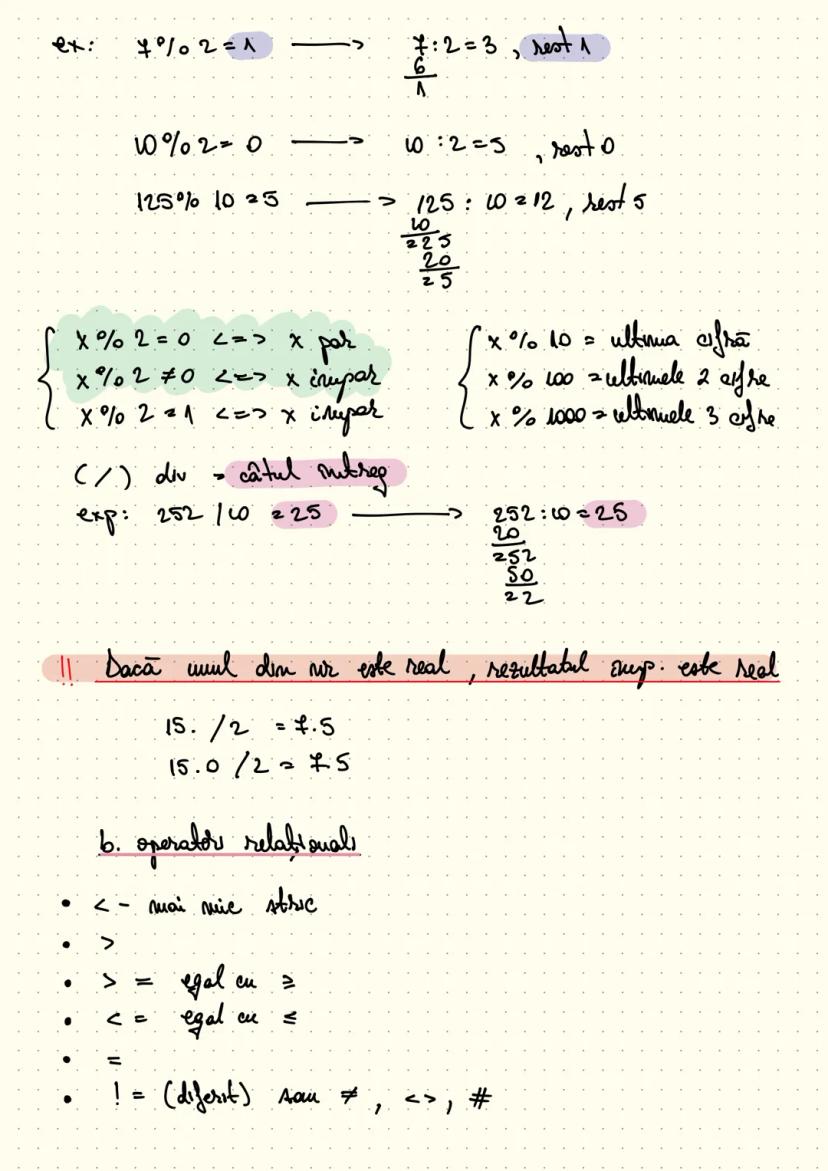 ex: 7 % 2 = 1 ⟶ 7 : 2 = 3 , rest 1
6
1
10 % 2 = 0 ⟶ 10 : 2 = 5 , rest 0
125 % 10 = 5 ⟶ 125 : 10 = 12 , rest 5
10
=25
20
=5
x % 2 = 0 <=> x par
x % 2 ≠ 0 <=> x impar
x % 2 = 1 <=> x impar
x % 10 = ultima cifră
x % 100 = ultimele 2 cifre
x % 1000 = ultimele 3 cifre
( / ) div → câtul întreg
exp: 252 / 10 = 25 ⟶ 252 : 10 = 25
20
=52
50
=2
!! Dacă unul din nr este real , rezultatul imp. este real
15. / 2 = 7.5
15.0 / 2 = 7.5
b. operatori relaționali
• < - mai mic strict
• >
• > = egal cu ≥
• < = egal cu ≤
• =
• ! = (diferit) sau ≠ , <> , #